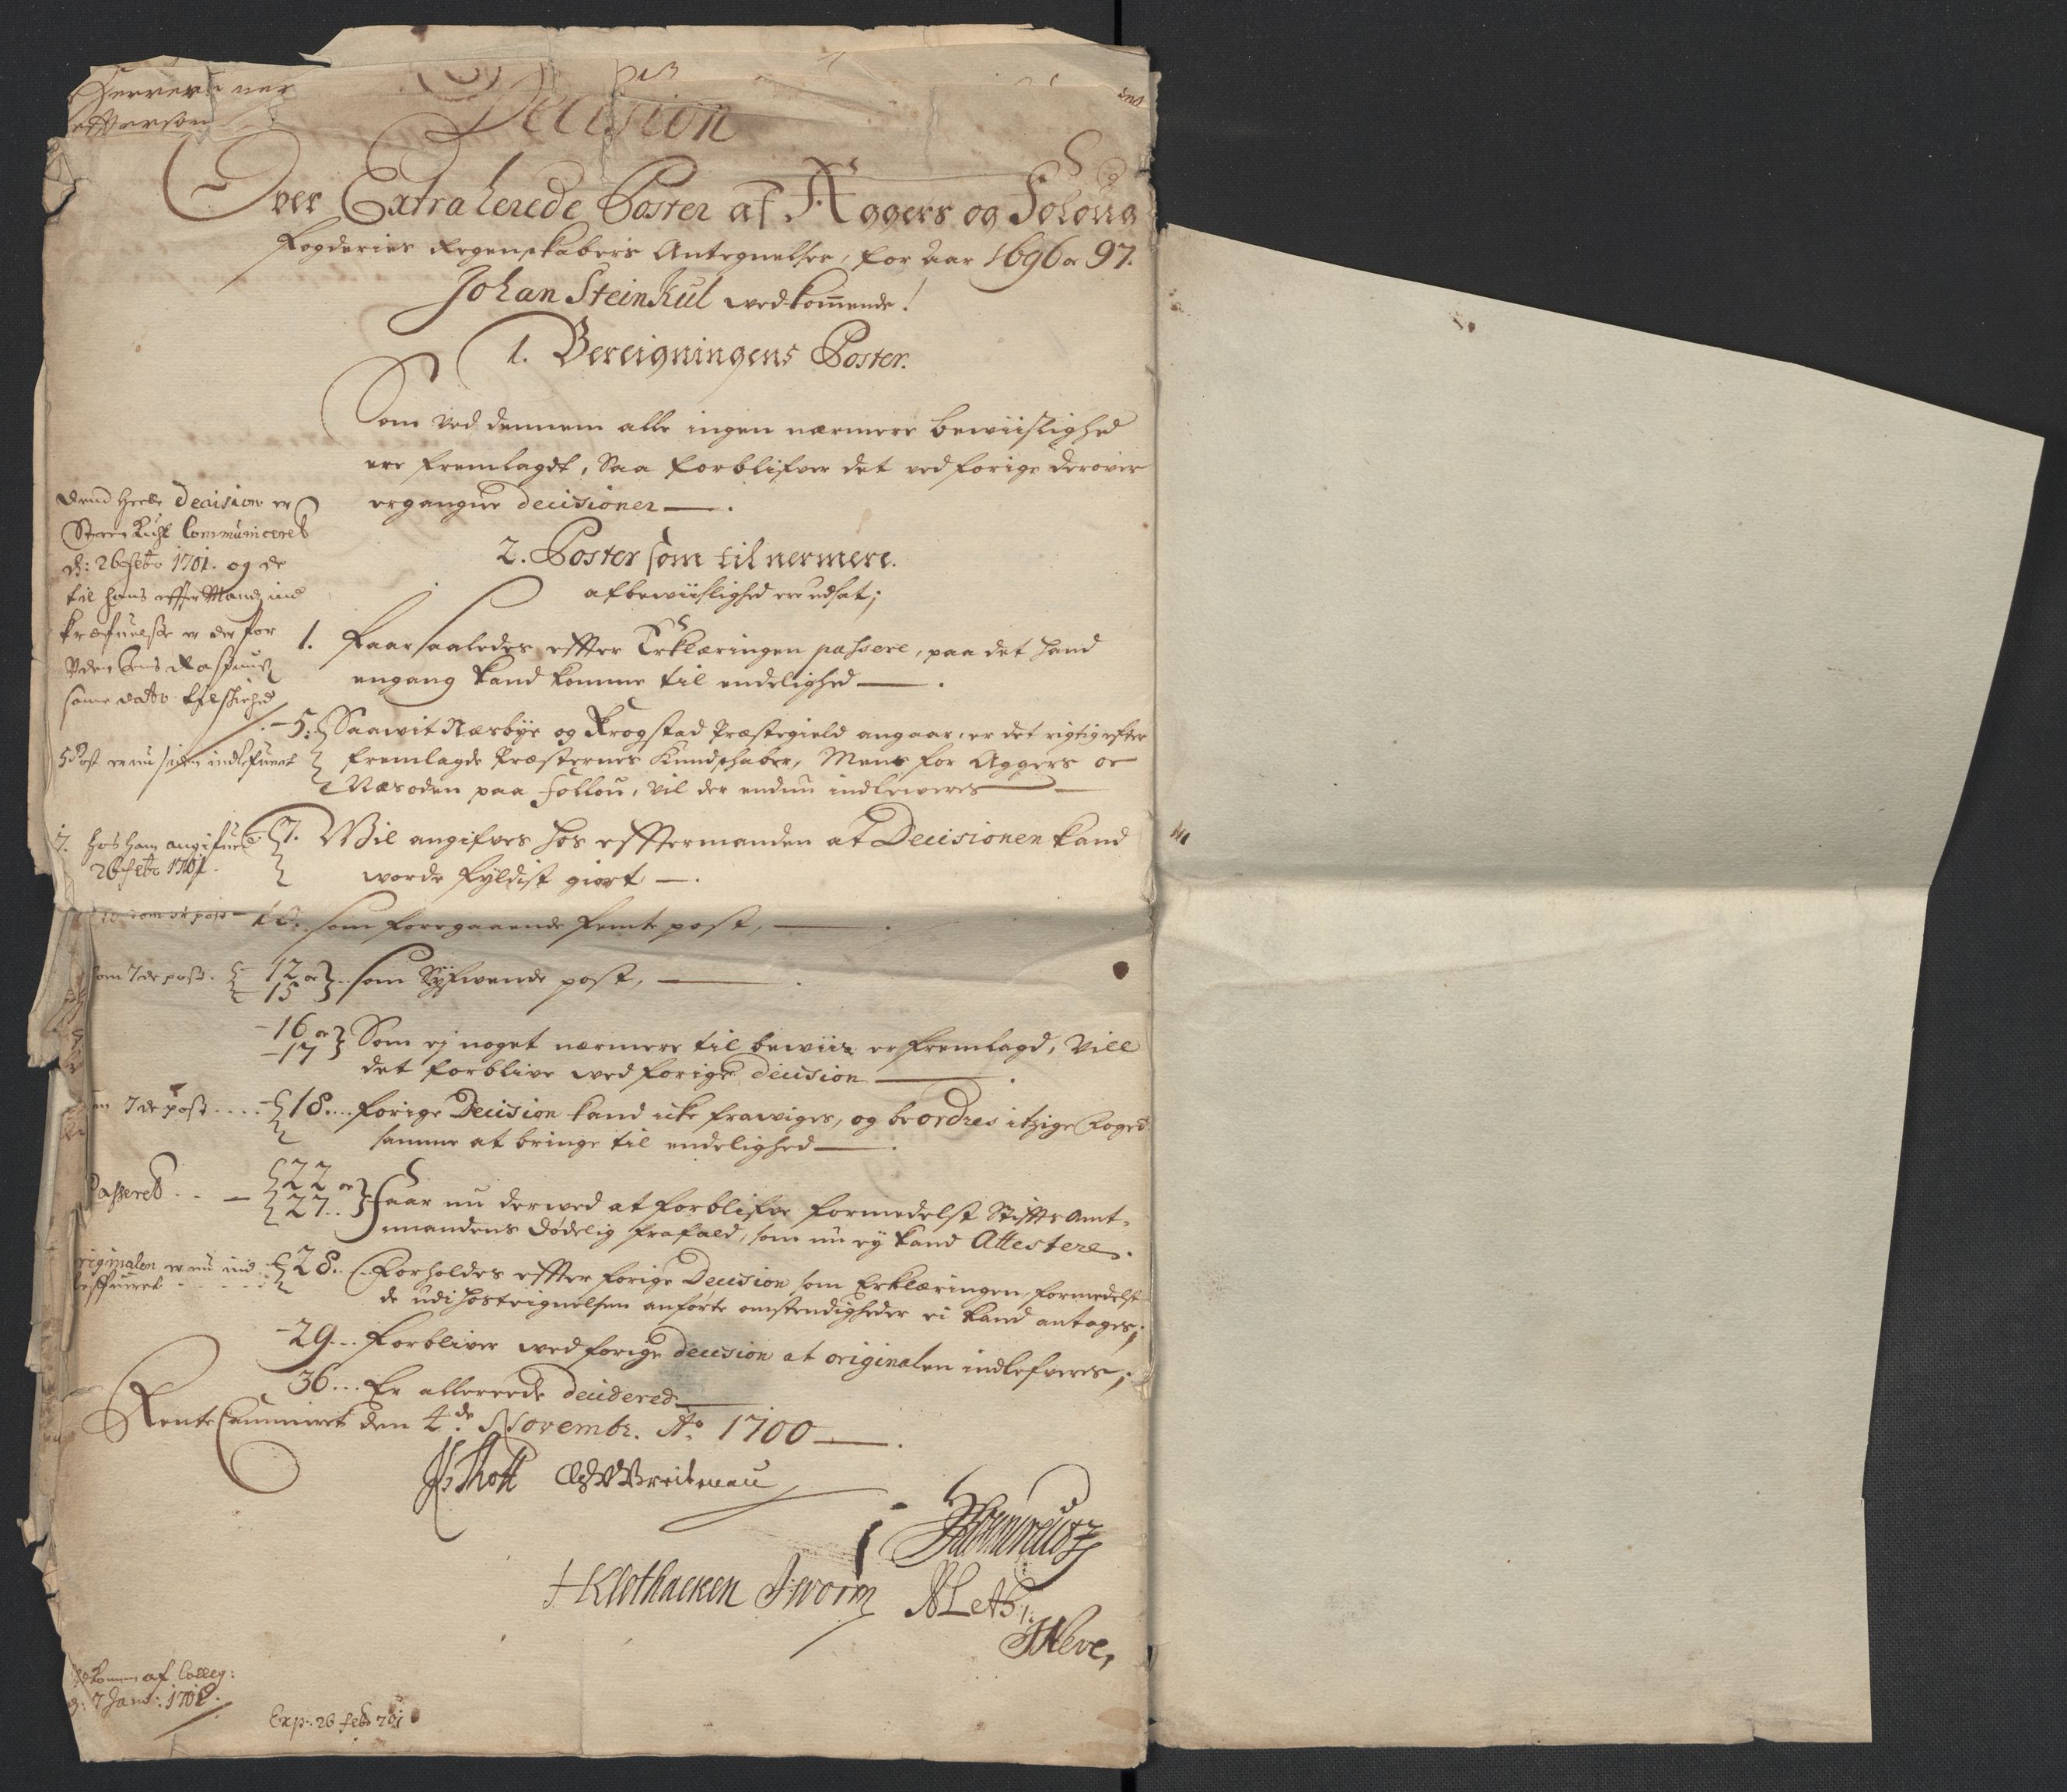 Decision
Over Extraherede Poster af Aggers og Folloug
Fogderies Regenskabers Antegnelser, for aar 1696 oc 97.
Johan Steinkul wedkom̄ende!
1. Bereigningens Poster.
Som ved dennem alle ingen nærmere bewiislighed
ere fremlagdt, Saa forblifver det ved forige derover
ergangne decisioner
2. Poster som til nermere.
afbewiislighed ere udsat;
1. Faar saaledes effter Erklæringen passere, paa det hand
engang kand komme til endelighed
5. Saawit Næsbye og Krogstad Præstegield angaar, er det rigtig efter
fremlagde Præsternes Kundskaber, Mens for Aggers oc
Næsoden paa Follou, vil der endnu indleweres
7. Wil angifves hos efftermanden at Decisionen kand
worde fyldist giort
10. som foregaaende femte post,
12 oc
15 som Syfwende post,
16 oc
17 Som ej noget nærmere til bewiis er fremlagd, Vill
det forblive wed forige Decision
18... forige Decision kand icke frawiges, og beordres itzige Foged
samme at bringe til endelighed
22 oc
27.. Faar nu derwed at forblifve formedelst Stiffts Amt-
mandens Dødelig frafald, som nu ey kand Attestere.
28.. Forholdes effter forige Decision som Erklæringen, formedelst
de udi hostegnelsen anførte omstendigheder ei kand antages;
29... Forbliver wed forige decision at originalen indlefveres;
36... Er allereede decidered
Rente Cammeret den 4de Novembr. Ao 1700
Dend heele Decision er
Communiceret
d: 26 Febr 1701. og de
til hans effter Mand ind
er der for
samme dato tilskicked
5 Post er nu siden indlefveret
7. hos ham angifvet
26 Febr 1701.
10. som 5te post
som 7de post.
7de post....
Passeret
originalen er nu ind
leffueret
af Colleg:
d: 7 Janv: 1701.
Exp: 26 Feb 701